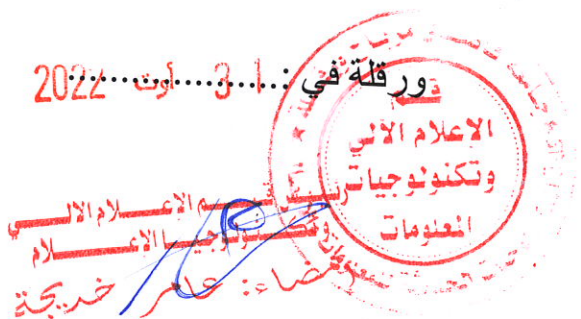 ورقلة في :.................
31 أوت 2022
قسم
الإعلام الآلي
وتكنولوجيات
المعلومات
رئيس قسم الاعلام الالي
وتكنولوجيا الاعلام
إمضاء: عامر خديجة